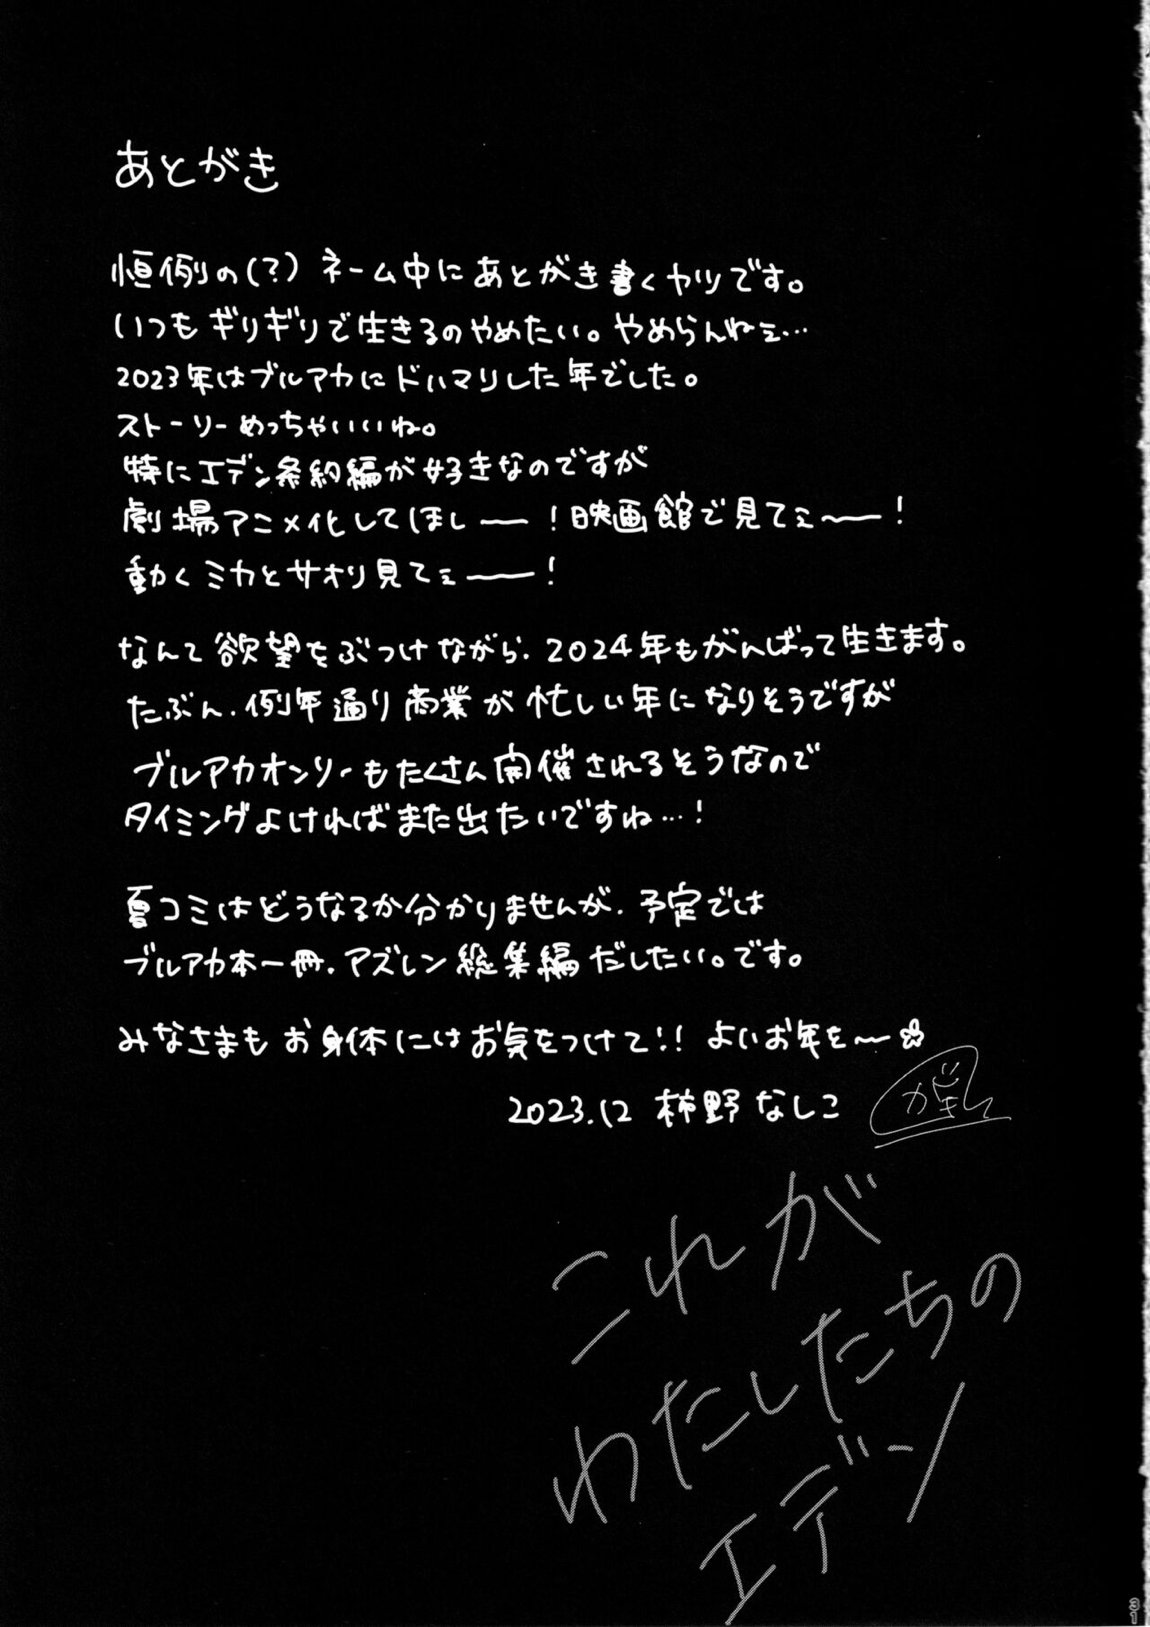 あとがき
恒例の(?) ネーム中にあとがき書くヤツです。
いつもギリギリで生きるのやめたい。やめらんねぇ…
2023年はブルアカにドハマリした年でした。
ストーリーめっちゃいいね。
特にエデン条約編が好きなのですが
劇場アニメ化してほしー！映画館で見てぇ〜ー！
動くミカとサオリ見てぇー！
なんて欲望をぶつけながら、2024年もがんばって生きます。
たぶん、例年通り商業が忙しい年になりそうですが
ブルアカオンリーもたくさん開催されるそうなので
タイミングよければまた出たいですね…！
夏コミはどうなるか分かりませんが、予定では
ブルアカ本一冊、アズレン総集編だしたい。です。
みなさまもお身体にはお気をつけて!! よいお年を〜
2023.12 柿野なしこ
これが
わたしたちの
エデン
31